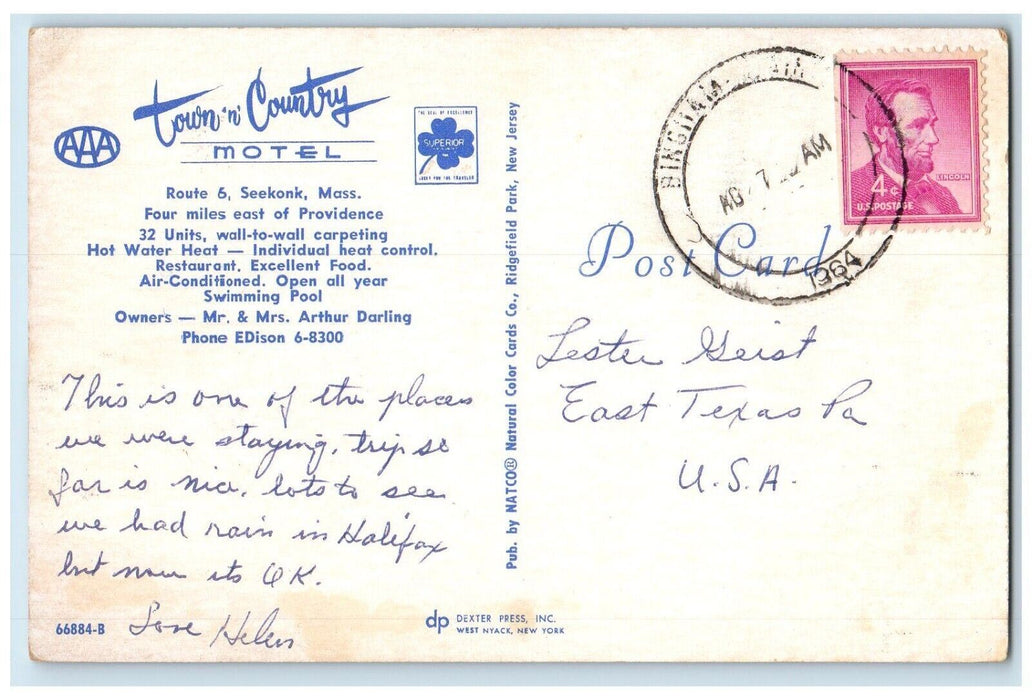 Town 'n' Country
MOTEL
AAA
THE SEAL OF EXCELLENCE
SUPERIOR
Route 6, Seekonk, Mass.
Four miles east of Providence
32 Units, wall-to-wall carpeting
Hot Water Heat — Individual heat control.
Restaurant. Excellent Food.
Air-Conditioned. Open all year
Swimming Pool
Owners — Mr. & Mrs. Arthur Darling
Phone EDison 6-8300
This is one of the places
we were staying, trip so
far is nice, lots to see
we had rain in Halifax
but now its OK.
Love Helen
66884-B
Pub. by NATCO® Natural Color Cards Co., Ridgefield Park, New Jersey
dp DEXTER PRESS, INC.
WEST NYACK, NEW YORK
AM
1964
LINCOLN
4¢
U.S. POSTAGE
Post Card
Lester Geist
East Texas Pa
U.S.A.